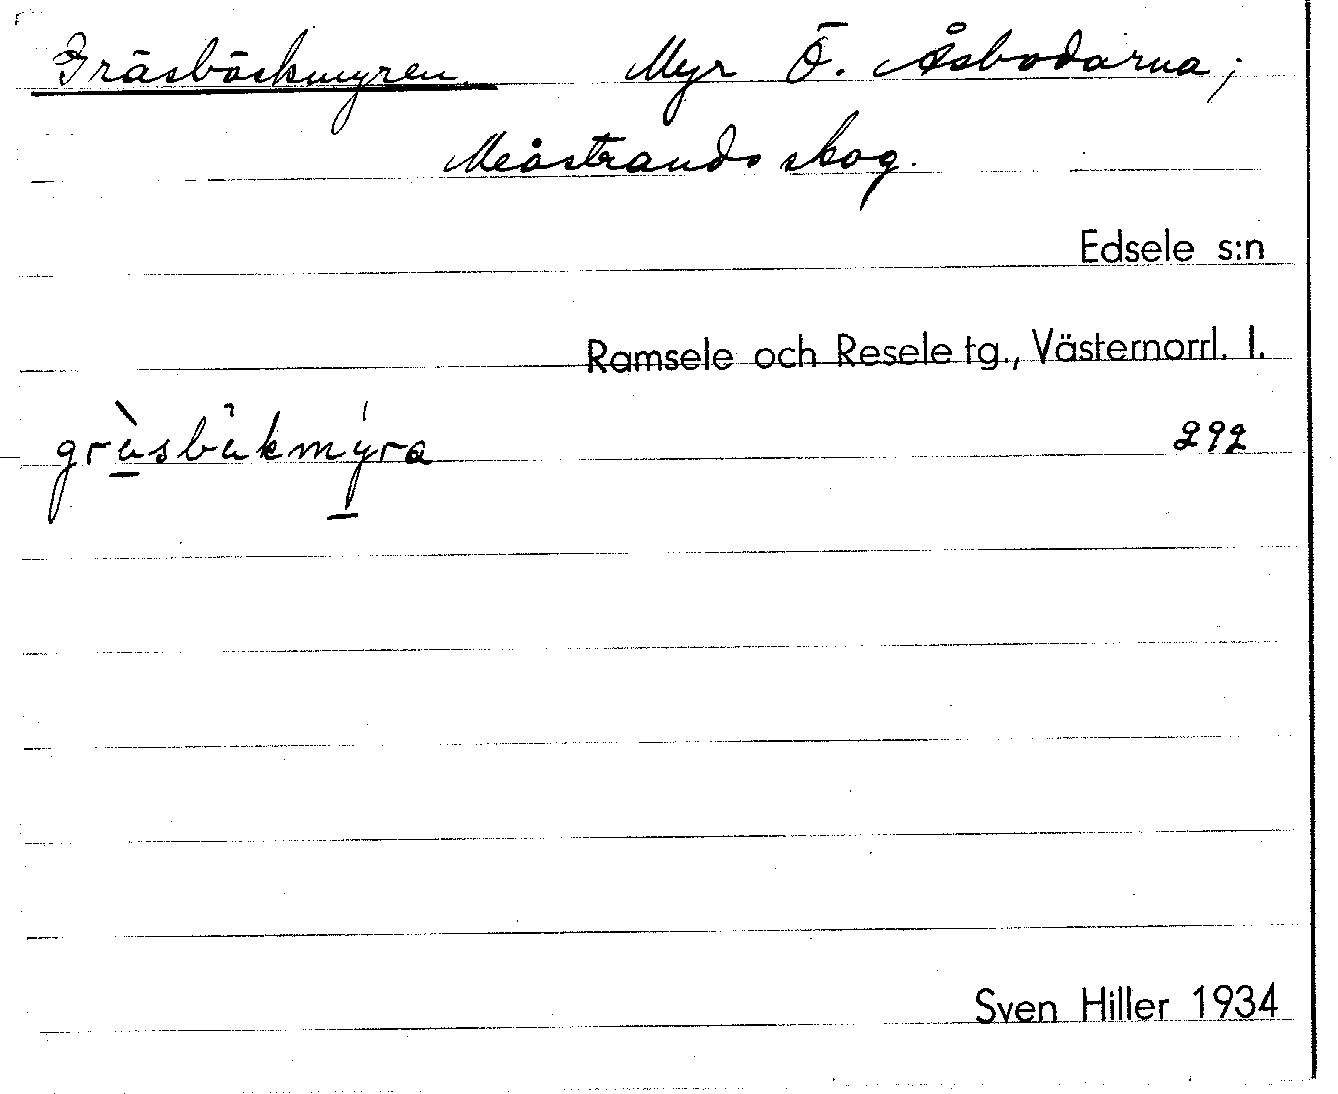 Gräsbäckmyren. Myr Ö. Åsbodarna;
Meåstrands skog.
Edsele s:n
Ramsele och Resele tg., Västernorrl. l.
292
Sven Hiller 1934